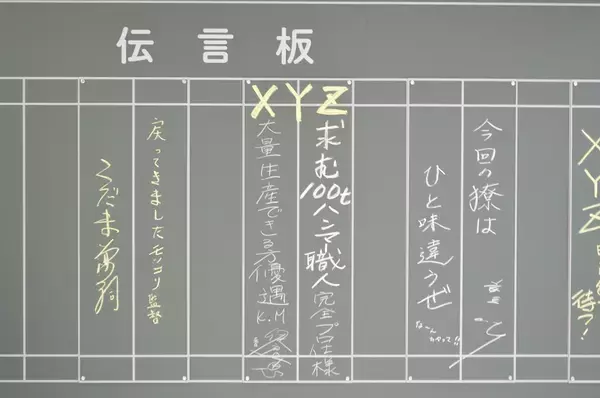 伝言板
XYZ
待つ!
今回の獠は
ひと味違うぜ
なーんちゃって!!
XYZ
求む100tハンマー職人 完全プロ仕様
大量生産できる方優遇 K.M
戻ってきましたモッコリ監督
こだま兼嗣